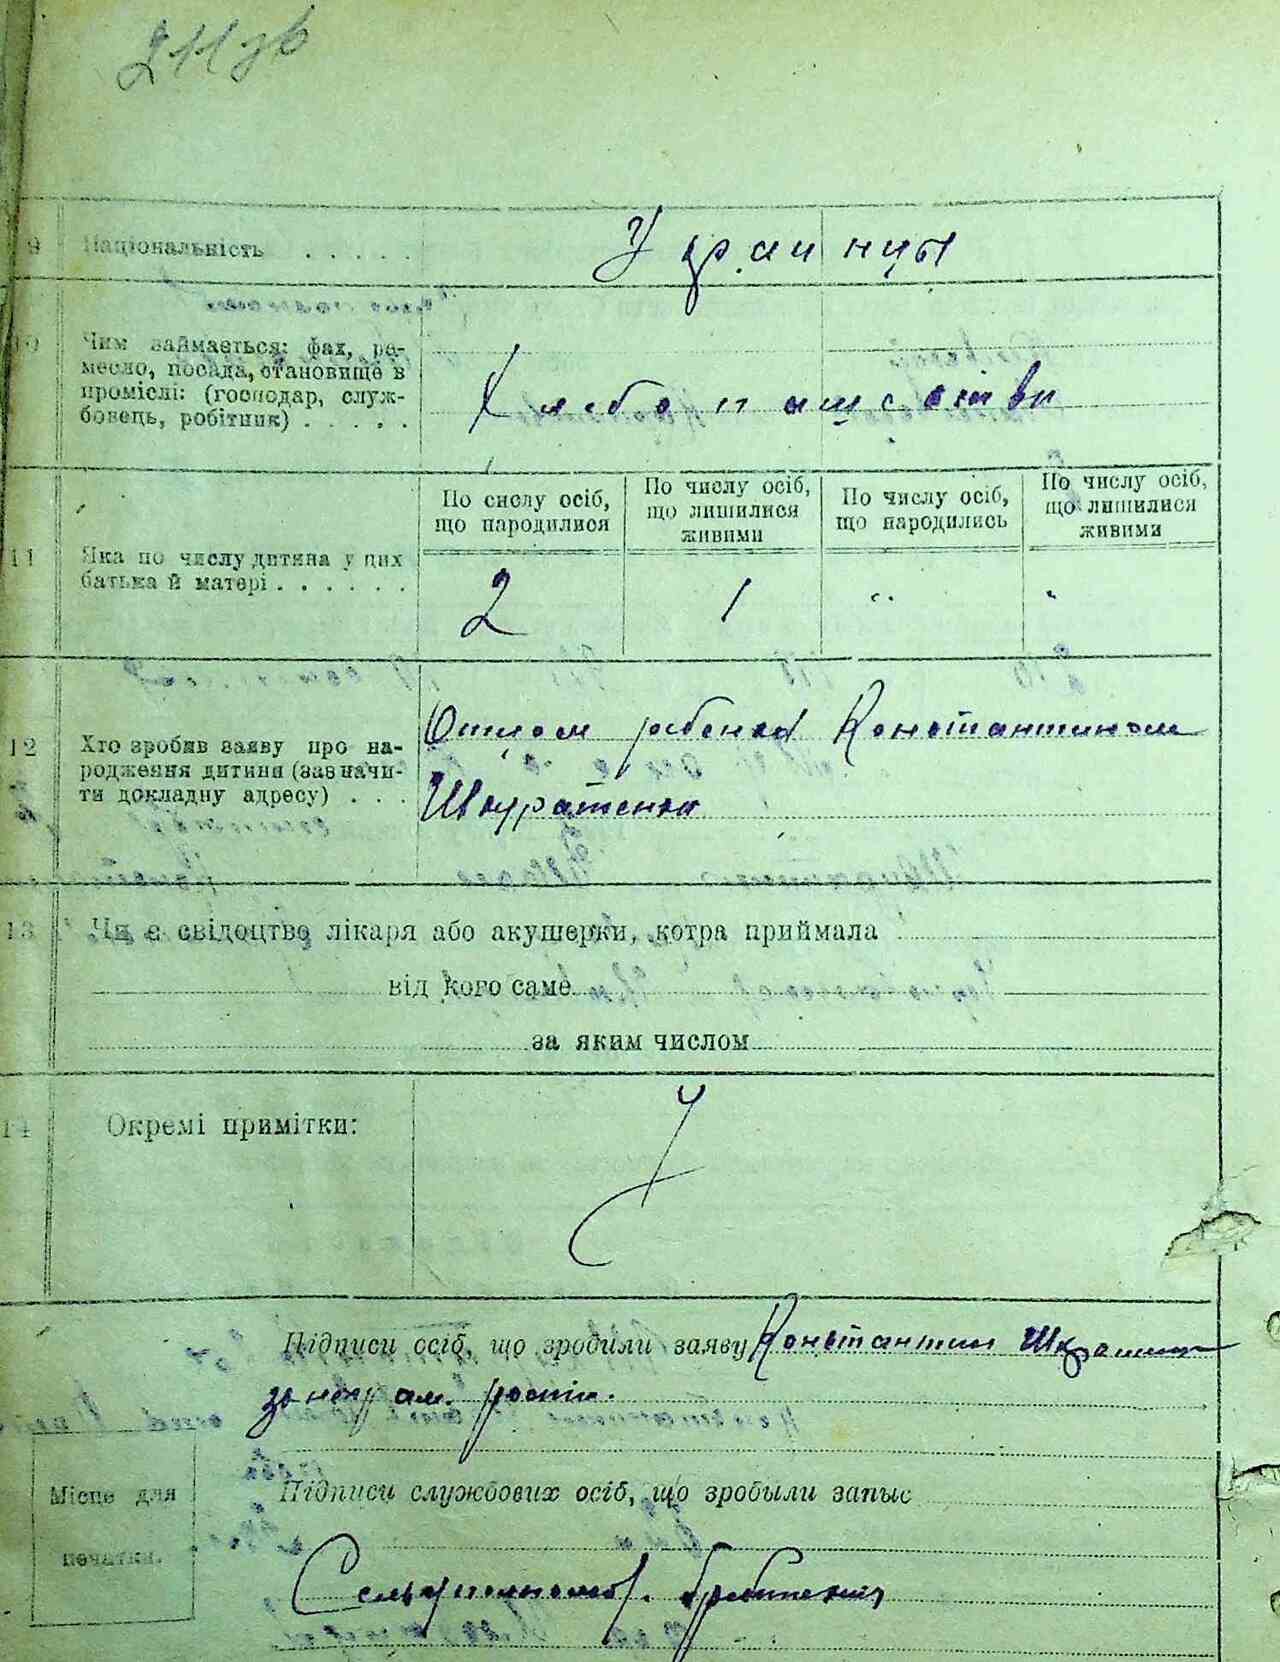 211 зв
9 Національність . . . . . Украинцы
10 Чим займається: фах, ре-
месло, посада, становище в
проміслі: (господар, служ-
бовець, робітник) . . . . . Хлебопашество
11 Яка по числу дитина у цих
батька й матері . . . . . .
По числу осіб,
що народилися
По числу осіб,
що лишилися
живими
По числу осіб,
що народились
По числу осіб,
що лишилися
живими
2 1 " "
12 Хто зробив заяву про на-
родження дитини (зазначи-
ти докладну адресу) . . .
Отцом ребенка Константином
Шкуратенко
13 Чи є свідоцтво лікаря або акушерки, котра приймала
від кого саме
за яким числом
14 Окремі примітки:
Підписи осіб, що зродили заяву Константин
за негр ам.
Місце для
печатки.
Підписи службових осіб, що зробыли запыс